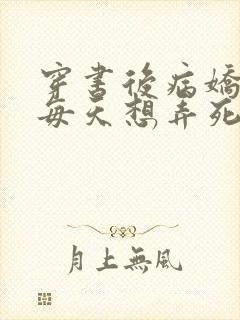 穿書後病嬌
每天想弄死
月上無風